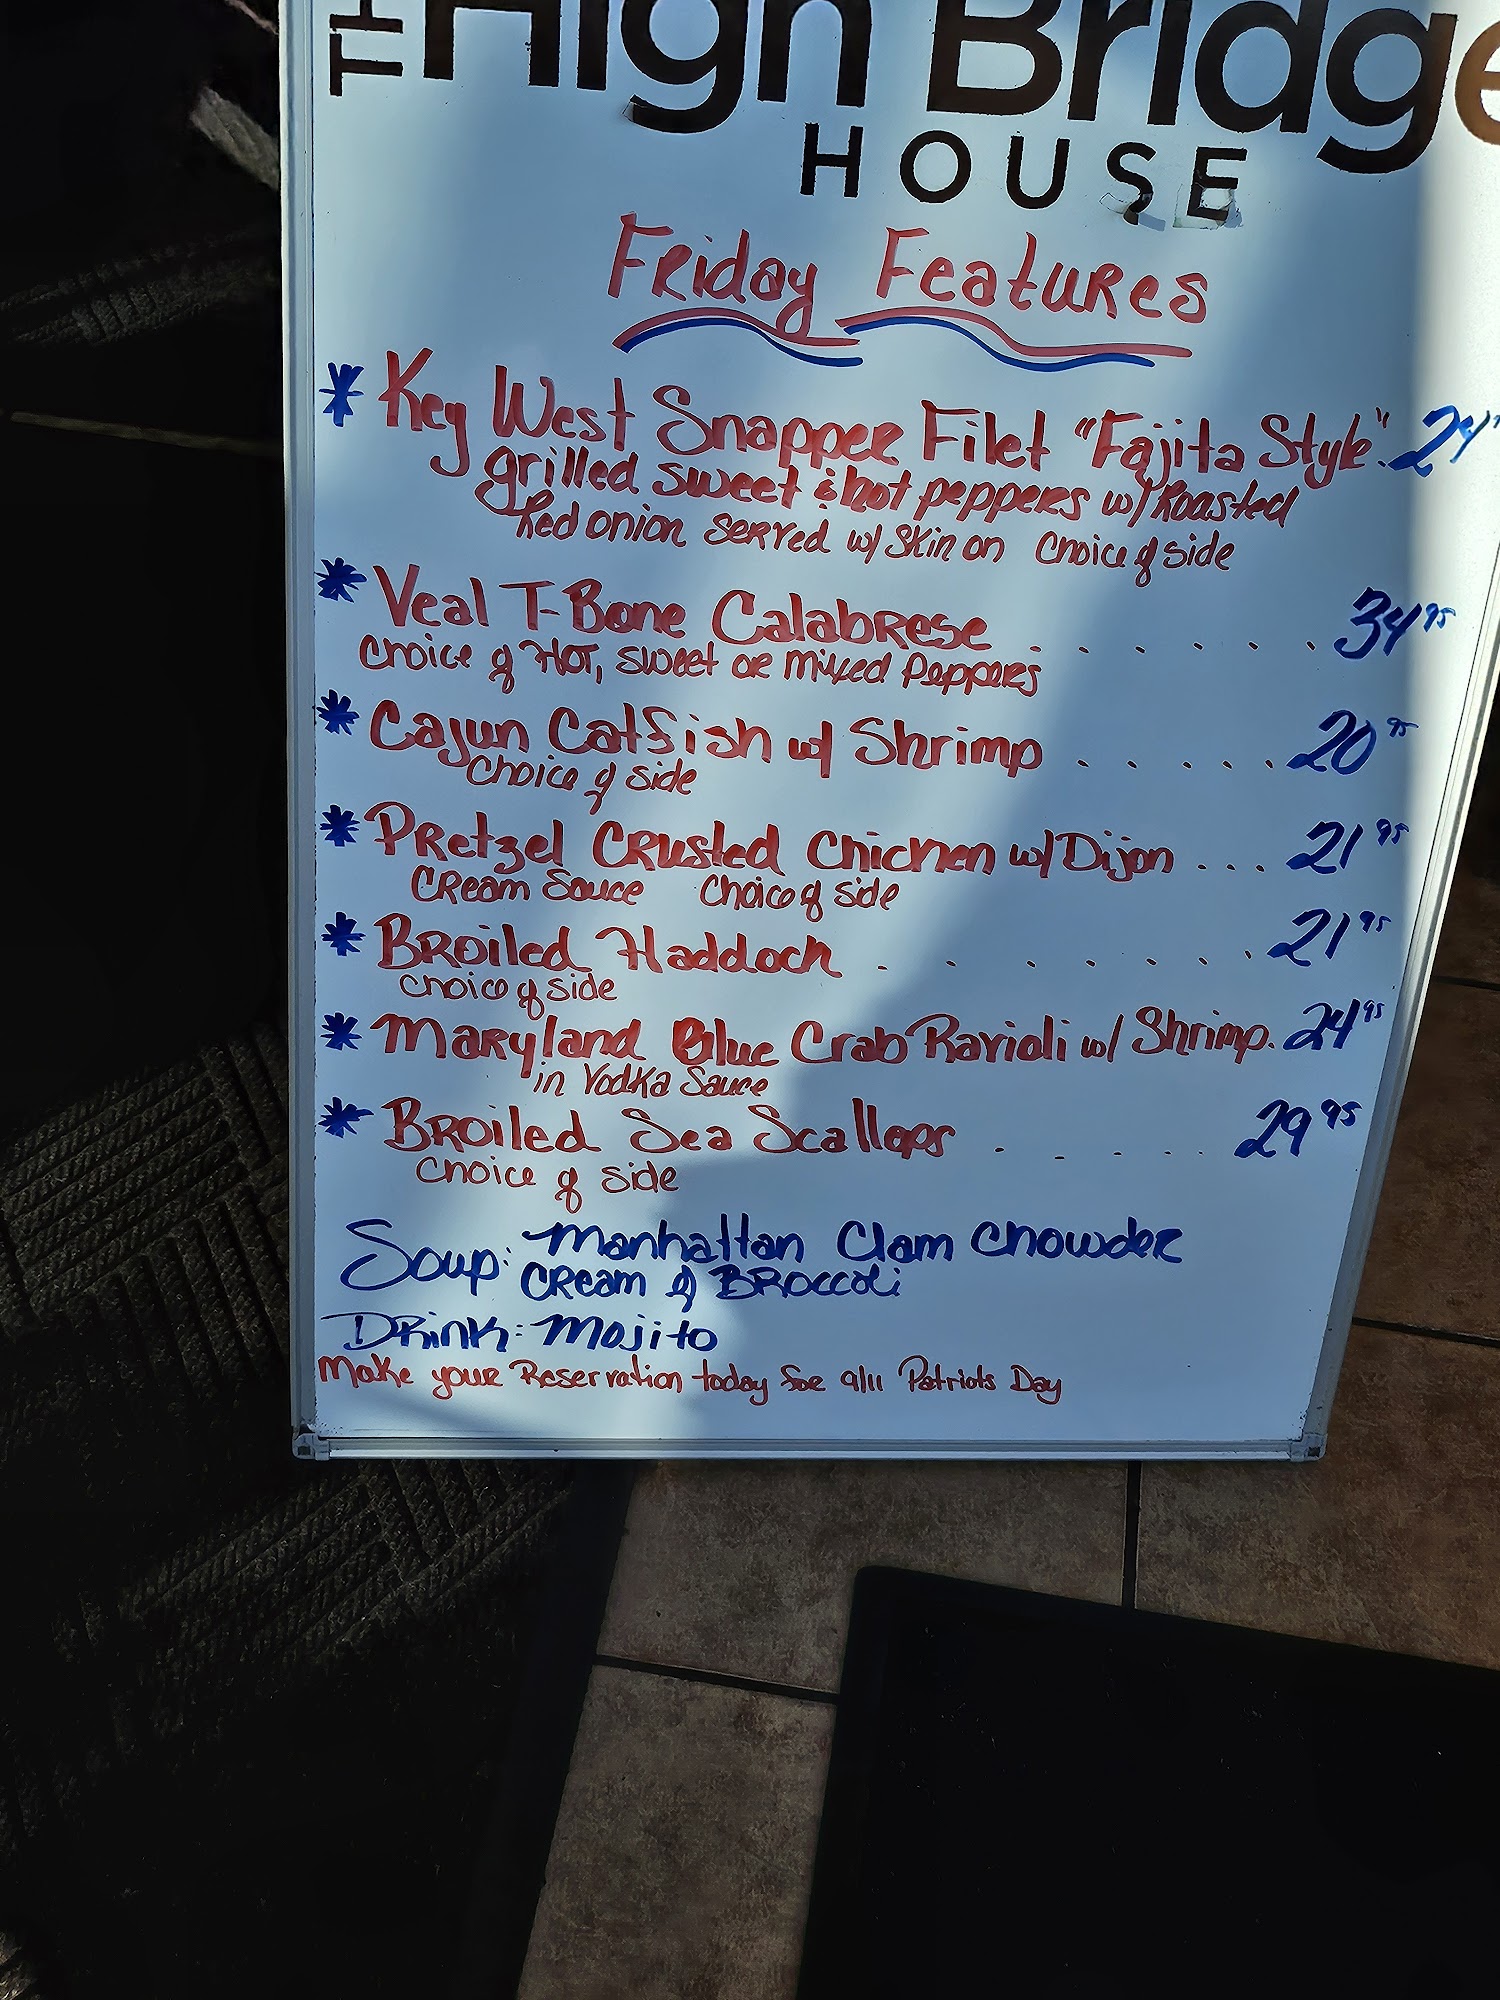 THE High Bridge
HOUSE
Friday Features
* Key West Snapper Filet "Fajita Style". 24
grilled sweet & hot peppers w/ Roasted
Red onion served w/ Skin on Choice of side
* Veal T-Bone Calabrese . . . . . . 34 95
Choice of Hot, sweet or mixed Peppers
* Cajun Catfish w/ Shrimp . . . . . 20 95
Choice of side
* Pretzel Crusted Chicken w/ Dijon . . . 21 95
Cream Sauce Choice of side
* Broiled Haddock . . . . . . . 21 95
Choice of side
* Maryland Blue Crab Ravioli w/ Shrimp. 24 95
in Vodka Sauce
* Broiled Sea Scallops . . . . . 29 95
Choice of side
Soup: Manhattan Clam Chowder
Cream of Broccoli
Drink: Mojito
Make your Reservation today for 9/11 Patriots Day